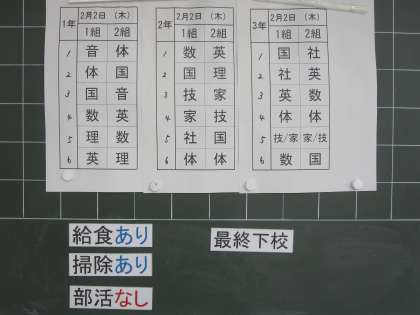 1年 2月2日 (木)
1組 2組
1 音 体
2 体 国
3 国 音
4 数 英
5 理 数
6 英 理
2年 2月2日 (木)
1組 2組
1 数 英
2 国 理
3 技 家
4 家 技
5 社 国
6 体 体
3年 2月2日 (木)
1組 2組
1 国 社
2 社 英
3 英 数
4 体 体
5 技/家 家/技
6 数 国
給食あり
掃除あり
部活なし
最終下校